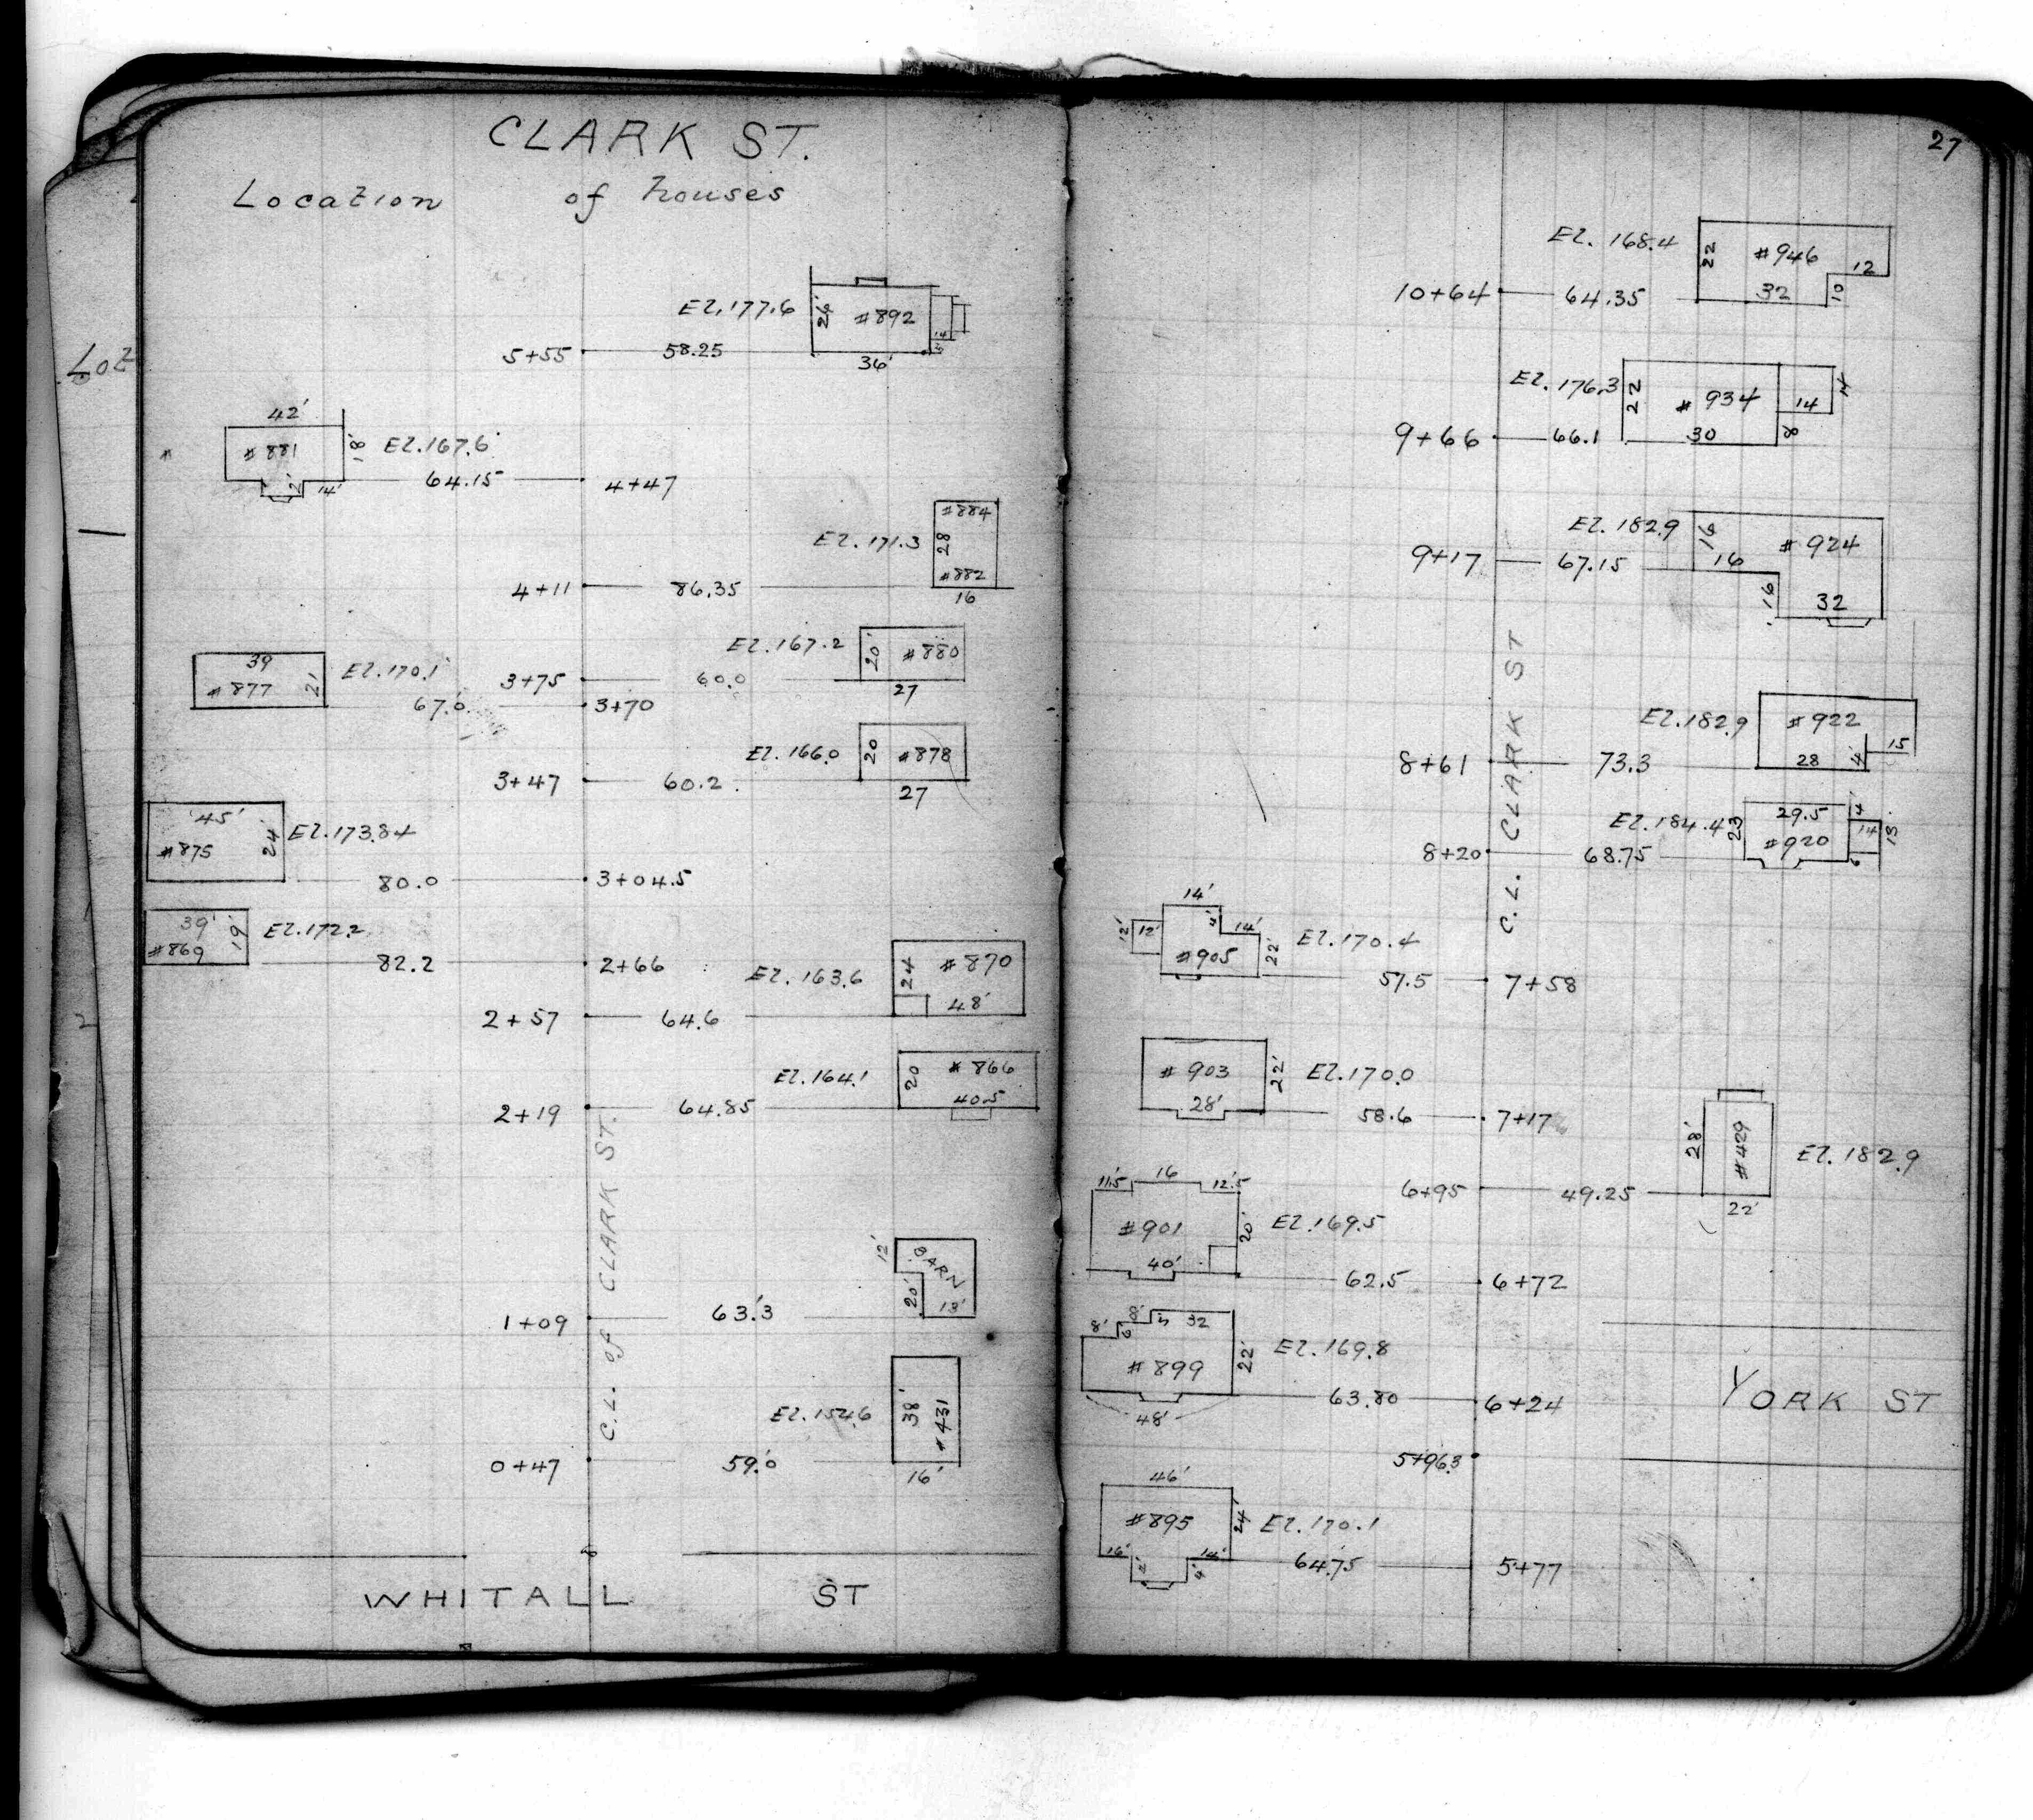 CLARK ST.
Location of houses
El. 177.6 26' #892
14
5+55 58.25 36'
42'
#881 18' El. 167.6
2' 14' 64.15 4+47
#884
El. 171.3 28
#882
4+11 86.35 16
El. 167.2 20' #880
39
#877 21 El. 170.1 3+75 60.0 27
67.0 3+70
El. 166.0 20 #878
3+47 60.2 27
45'
#875 24' El. 173.84
80.0 3+04.5
39' 19' El. 172.2
#869 82.2 2+66
El. 163.6 24 #870
2+57 64.6 48'
El. 164.1 20 #866
40.5
2+19 64.85
C.L. of CLARK ST.
12' BARN
20' 13'
1+09 63.3
El. 154.6 38' #431
0+47 59.0 16'
WHITALL ST
Lot
27
El. 168.4 22 #946 12
10+64 64.35 32 10
El. 176.3 22 #934 14 14
9+66 66.1 30 8
El. 182.9 16 #924
9+17 67.15 16
16 32
C.L. CLARK ST
El. 182.9 #922 15
8+61 73.3 28 4'
El. 184.4 23 29.5 14 13
#920 6
8+20 68.75
14'
12' 12' 4' 14'
#905 22' El. 170.4
57.5 7+58
#903 22' El. 170.0
28' 58.6 7+17
28' #429 El. 182.9
6+95 49.25 22'
11.5 16 12.5
#901 20' El. 169.5
40' 62.5 6+72
8' 8' 32
#899 22' El. 169.8
63.80 6+24
48'
YORK ST
5+96.3
46'
#895 24' El. 170.1
16' 14' 64.75 5+77